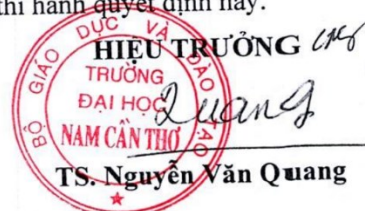 thi hành quyết định này.
HIỆU TRƯỞNG
BỘ GIÁO DỤC VÀ ĐÀO TẠO
TRƯỜNG
ĐẠI HỌC
NAM CẦN THƠ
Quang
TS. Nguyễn Văn Quang